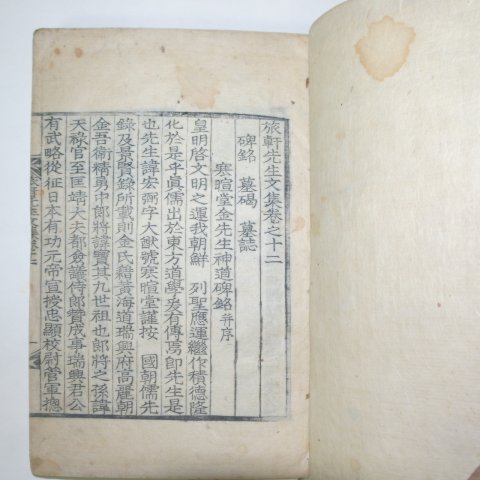 旅軒先生文集卷之十二
碑銘 墓碣 墓誌
寒暄堂金先生神道碑銘 幷序
皇明啓文明之運我朝鮮 列聖應運繼作積德隆
化於是乎眞儒出於東方道學矣有傳焉卽先生是
也先生諱宏弼字大猷號寒暄堂謹按 國朝儒先
錄及景賢錄所載則金氏籍黃海道瑞興府高麗朝
金吾衛精勇中郞將諱寶其九世祖也郞將之孫諱
天祿官至匡靖大夫都僉議侍郞贊成事瑞興君公
有武略從征日本有功元帝宣授忠顯校尉管軍摠